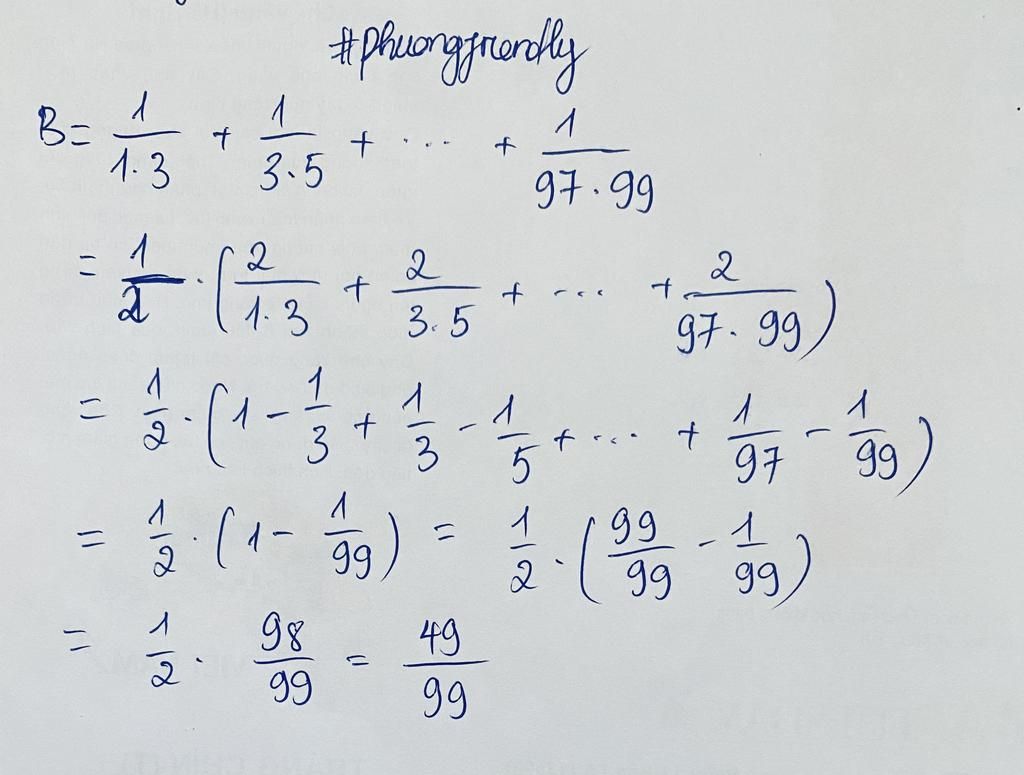 #phuongfriendly
B = 1/(1.3) + 1/(3.5) + ... + 1/(97.99)
= 1/2 . (2/(1.3) + 2/(3.5) + ... + 2/(97.99))
= 1/2 . (1 - 1/3 + 1/3 - 1/5 + ... + 1/97 - 1/99)
= 1/2 . (1 - 1/99) = 1/2 . (99/99 - 1/99)
= 1/2 . 98/99 = 49/99